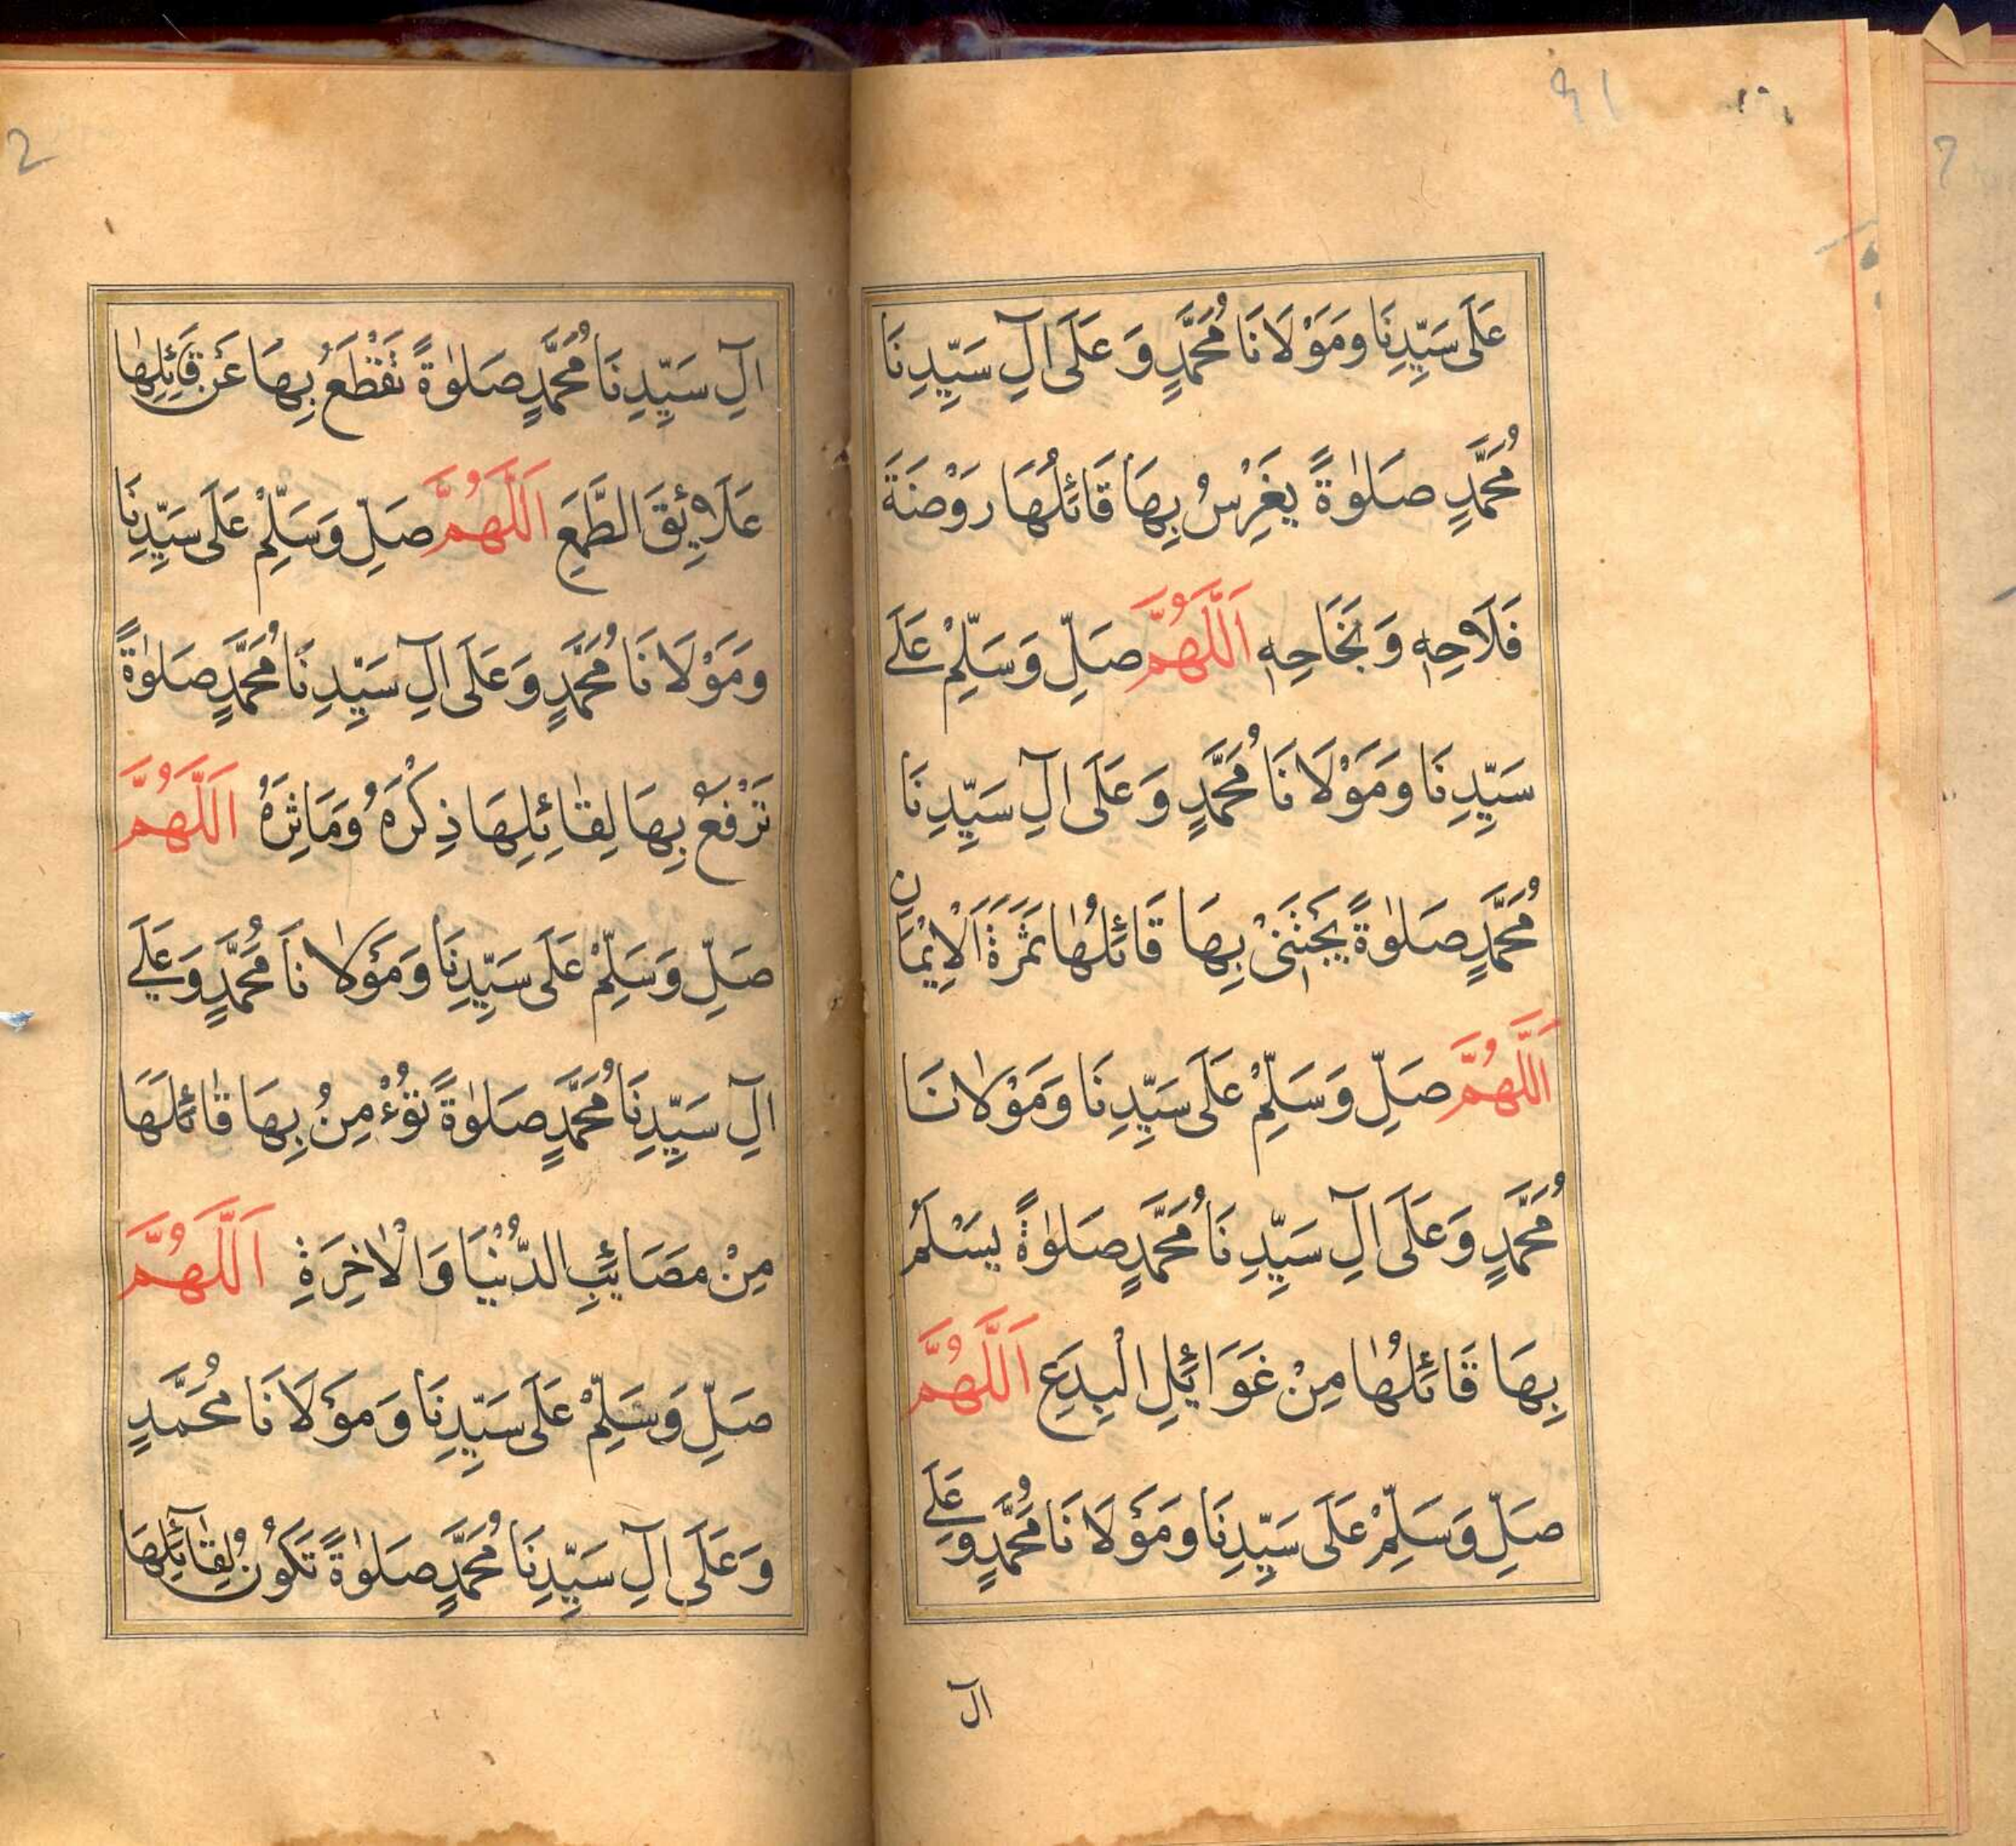 عَلَى سَيِّدِنَا وَمَوْلَانَا مُحَمَّدٍ وَعَلَى اٰلِ سَيِّدِنَا
مُحَمَّدٍ صَلٰوةً يَغْرِسُ بِهَا قَائِلُهَا رَوْضَةَ
فَلَاحِهٖ وَنَجَاحِهٖ اَللّٰهُمَّ صَلِّ وَسَلِّمْ عَلَى
سَيِّدِنَا وَمَوْلَانَا مُحَمَّدٍ وَعَلَى اٰلِ سَيِّدِنَا
مُحَمَّدٍ صَلٰوةً يَجْتَنِىْ بِهَا قَائِلُهَا ثَمَرَةَ الْاِيْمَانِ
اَللّٰهُمَّ صَلِّ وَسَلِّمْ عَلَى سَيِّدِنَا وَمَوْلَانَا
مُحَمَّدٍ وَعَلَى اٰلِ سَيِّدِنَا مُحَمَّدٍ صَلٰوةً يَسْلَمُ
بِهَا قَائِلُهَا مِنْ غَوَائِلِ الْبِدَعِ اَللّٰهُمَّ
صَلِّ وَسَلِّمْ عَلَى سَيِّدِنَا وَمَوْلَانَا مُحَمَّدٍ وَعَلَى
اٰل
اٰلِ سَيِّدِنَا مُحَمَّدٍ صَلٰوةً تَقْطَعُ بِهَا عَنْ قَائِلِهَا
عَلَائِقَ الطَّمَعِ اَللّٰهُمَّ صَلِّ وَسَلِّمْ عَلَى سَيِّدِنَا
وَمَوْلَانَا مُحَمَّدٍ وَعَلَى اٰلِ سَيِّدِنَا مُحَمَّدٍ صَلٰوةً
تَرْفَعُ بِهَا لِقَائِلِهَا ذِكْرَهُ وَمَاٰثِرَهُ اَللّٰهُمَّ
صَلِّ وَسَلِّمْ عَلَى سَيِّدِنَا وَمَوْلَانَا مُحَمَّدٍ وَعَلَى
اٰلِ سَيِّدِنَا مُحَمَّدٍ صَلٰوةً تُؤْمِنُ بِهَا قَائِلَهَا
مِنْ مَصَائِبِ الدُّنْيَا وَالْاٰخِرَةِ اَللّٰهُمَّ
صَلِّ وَسَلِّمْ عَلَى سَيِّدِنَا وَمَوْلَانَا مُحَمَّدٍ
وَعَلَى اٰلِ سَيِّدِنَا مُحَمَّدٍ صَلٰوةً تَكُوْنُ لِقَائِلِهَا